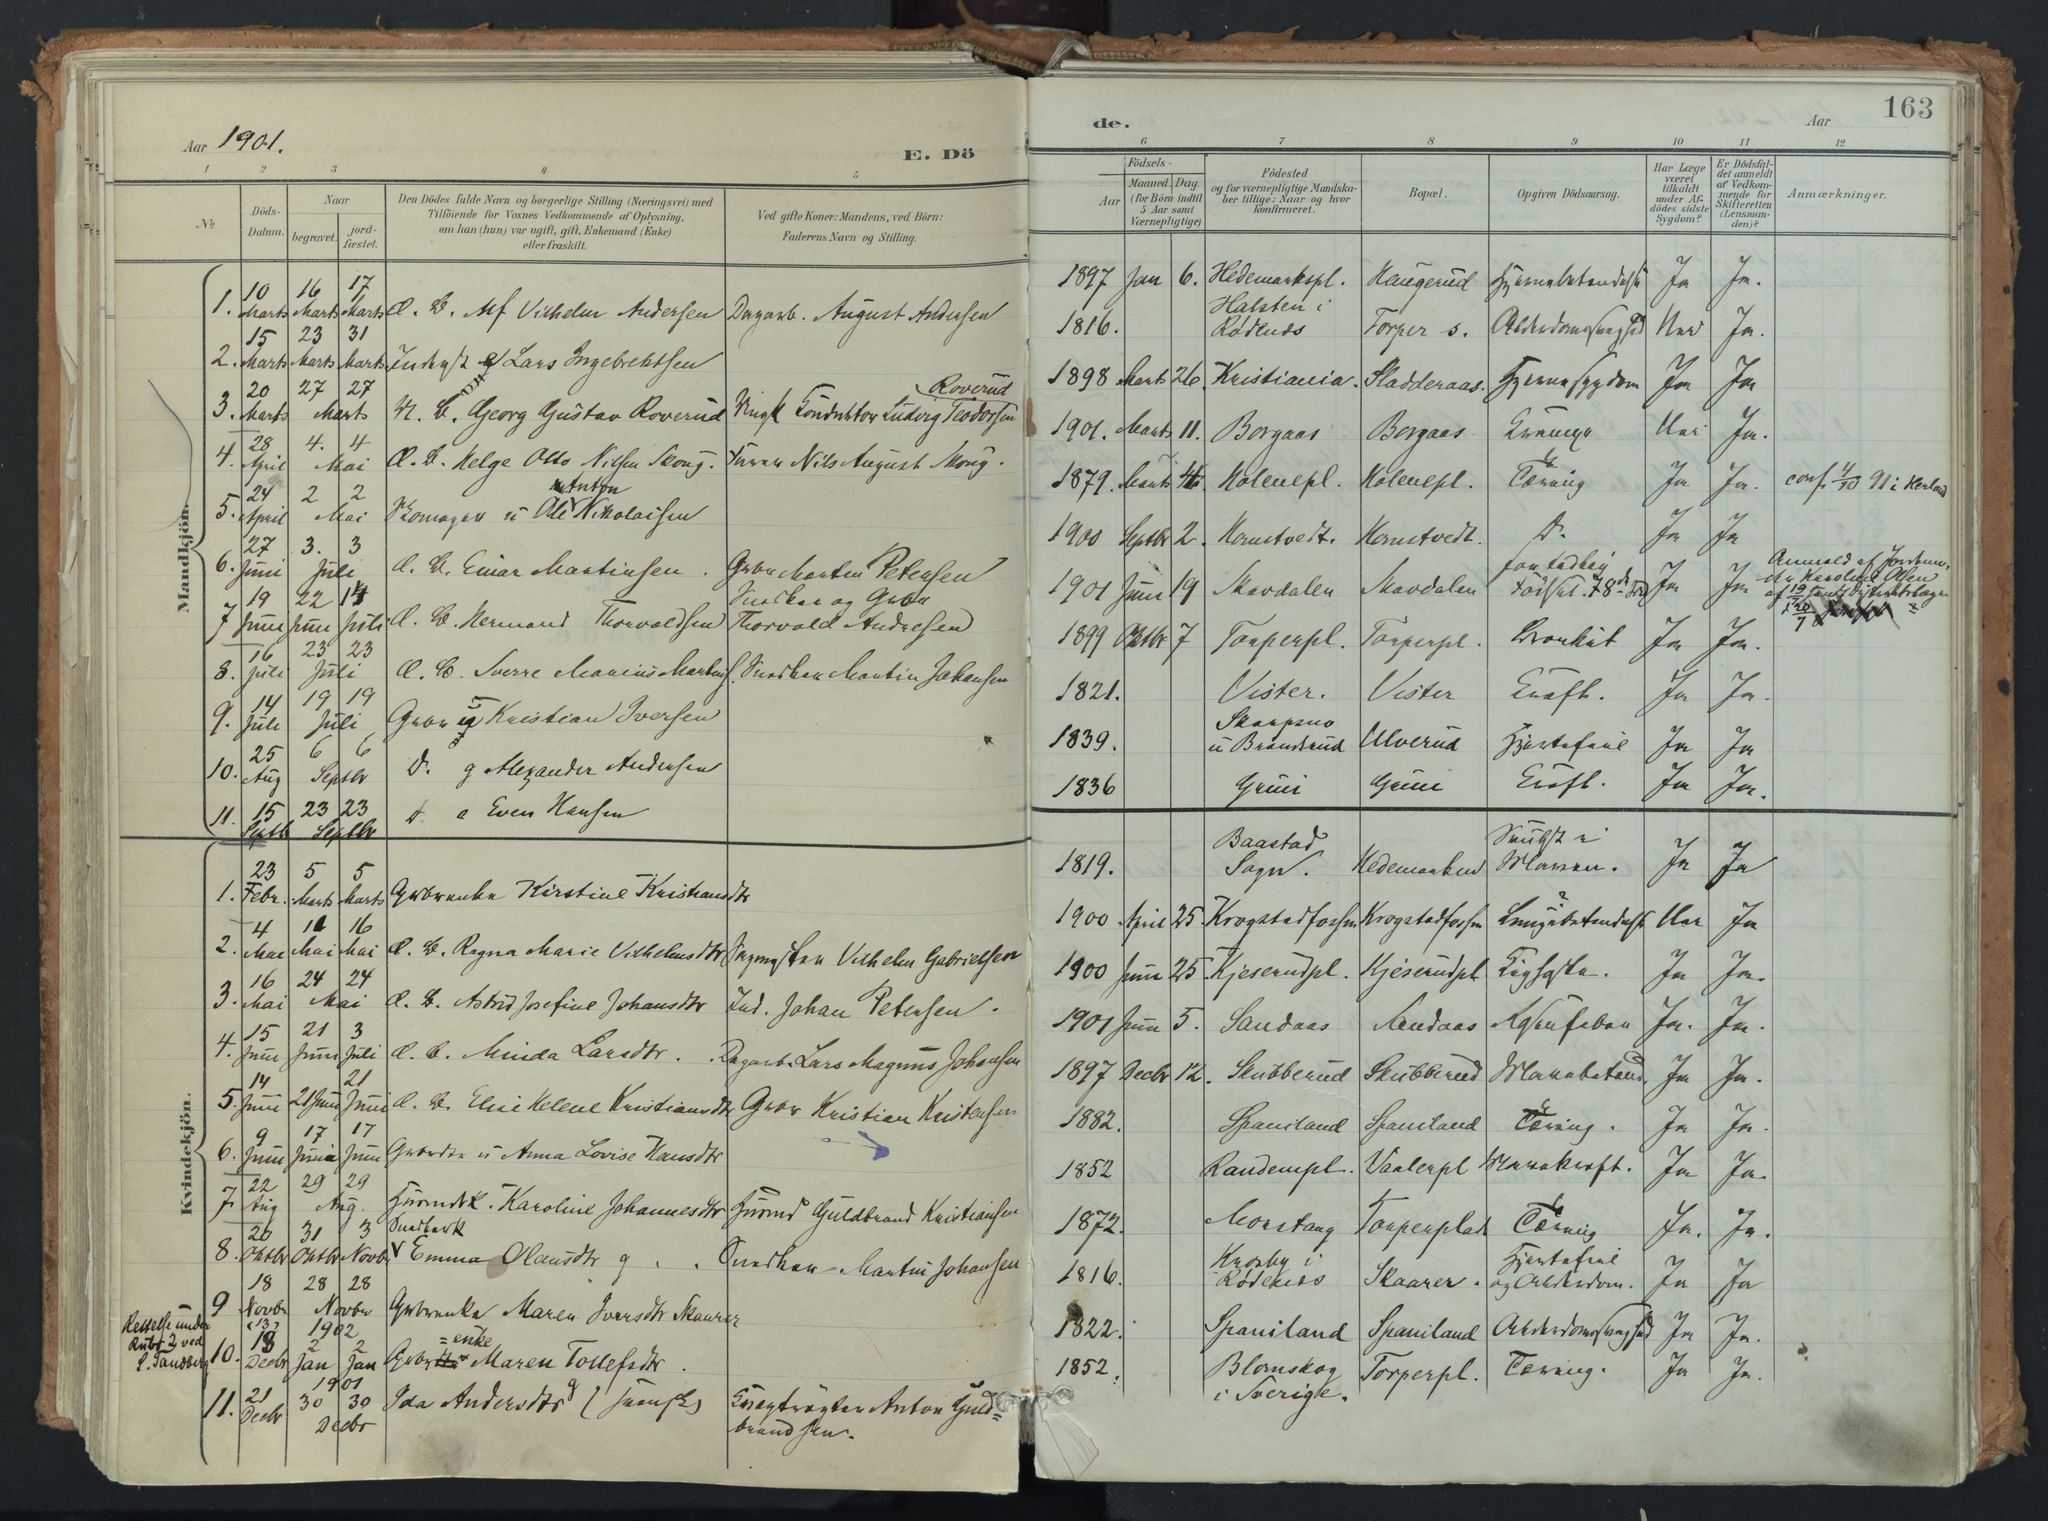 Aar 1901.
E. Dö
1 2 3 4 5
No
Döds-Datum.
Naar
begravet.
jord-fæstet.
Den Dödes fulde Navn og borgerlige Stilling (Næringsvei) med
Tilföiende for Voxnes Vedkommende af Oplysning,
om han (hun) var ugift, gift, Enkemand (Enke)
eller fraskilt.
Ved gifte Koner: Mandens, ved Börn:
Faderens Navn og Stilling.
Mandkjön.
10 16 17
1. Marts Marts Marts Vilhelm Andersen Dagarb. August Andersen
15 23 31
2. Marts Marts Marts Lars Ingebrektsen
20 27 27 Roverud
3. Marts Marts Georg Gustav Roverud Konduktör Ludvig Teodorsen
28 4. 4
4. April Mai Æ. B. Helge Otto Nilsen Skoug. Nils August Skoug.
24 2 2 Anton
5. April Mai Skomager u Ole Nikolaisen
27 3. 3
6. Juni Juli Æ. B. Einar Martinsen. Gbr Martin Petersen
19 22 14 Snedker og Gbr
7 Juni Juni Juli Æ. B. Hermand Thorvaldsen Thorvald Andresen
16 23 23
8. Juli Juli Æ. B. Sverre Marius Martins. Snedker Martin Johansen
14 19 19
9. Juli Juli Kristian Iversen
25 6 6
10. Aug Septbr D. g Alexander Andersen
15 23 23
11. Septb Septbr D. Even Hansen
Kvindekjön.
23 5 5
1. Febr. Marts Marts Kirstine Kristiansdtr
4 16
2. Mai Mai Mai Æ. B. Ragna Marie Vilhelmsdtr Vilhelm Gabrielsen
16 24 24
3. Mai Mai Æ. B. Astrid Josefine Johansdtr Ind. Johan Petersen.
15 21 3
4. Juni Juni Juli Æ. B. Minda Larsdtr. Dagarb. Lars Magnus Johansen
14 21
5. Juni 21 Juni Juni Æ. B. Elise Helene Kristiansdtr Kristian Kristensen
9 17 17
6. Juni Juni Juni u Anna Lovise Hansdtr
22 29 29
7. Aug Aug. Karoline Johannesdtr Guldbrand Kristiansen
20 31 3
8. Oktbr Oktbr Novbr Emma Olausdtr g Snedker Martin Johansen
18 28 28
9 Novbr Novbr Maren Iversdtr Skaarer
Rettelse under
Rubr 2 ved
(13) 1902 = enke
10. 18 2 2
Decbr Jan Jan Maren Tollefsdtr.
1901
21 30 30
11. Decbr Decbr Ida Andersdtr g (svensk) Anton Guld=
brandsen.
163
de.
Aar
6 7 8 9 10 11 12
Födsels-
Aar
Maaned. Dag
(for Börn indtil
5 Aar samt
Værnepligtige)
Födested
og for værnepligtige Mandska-
ber tillige: Naar og hvor
konfirmeret.
Bopæl.
Opgiven Dödsaarsag.
Har Læge
været
tilkaldt
under Af-
dödes sidste
Sygdom?
Er Dödsfal-
det anmeldt
af Vedkom-
mende for
Skifteretten
(Lensman-
den)?
Anmærkninger.
1897 Jan 6. Hedemarkspl. Haugerud Hjernebetændelse Ja Ja.
Halsten i
1816. Rødenes Torper s. Alderdomssvaghed Nei Ja.
1898 Marts 26 Kristiania. Sladderaas. Hjernesygdom Ja Ja
1901. Marts 11. Borgaas Borgaas Krampe Nei Ja.
1879. Marts 4. Holenepl. Holenepl. Tæring Ja Ja. conf. 4/10 91 i Herland
1900 Septbr 2. Hernstvedt. Hernstvedt. D. Ja Ja
for tidlig
1901 Juni 19 Mavdalen Mavdalen Fødsel. Ja Ja
Anmeld af
Karoline Olsen
1899 Oktbr 7 Torperpl. Torperpl. Bronkit Ja Ja.
1821. Vister. Vister Kræft. Ja Ja.
1839. u Brandsrud Ulverud Hjertefeil Ja Ja
1836 Gruni Kræft. Ja Ja.
Baastad
1819. Sogn. Hedemarken Maven. Ja Ja
1900 April 25 Krogstadfossen Krogstadfossen Lungebetændelse Nei Ja
1900 Juni 25 Kjeserudpl. Kjeserudpl Kighoste. Ja Ja.
1901 Juni 5. Sandaas Sandaas Ja. Ja.
1897 Decbr 12. Skubberud Skubberud Mavebetænd. Ja Ja.
1882. Spaniland Spaniland Tæring. Ja Ja.
1852 Raudempl. Vaalerpl Mavekræft. Ja Ja.
1872. Morstang Torperplads Tæring Ja. Ja.
Krosby i Hjertefeil
1816. Rødenes Skaarer. og Alderdom. Ja Ja
1822. Spaniland Spaniland Alderdomssvaghed Ja Ja.
1852. Blomskog Torperpl. Tæring. Ja Ja.
i Sverige.